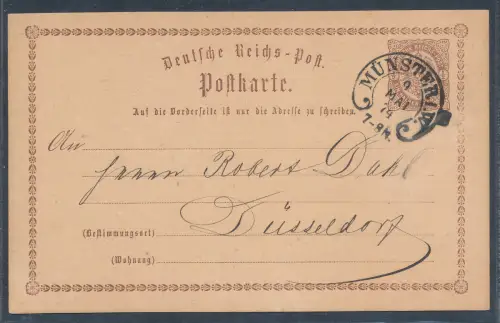 Deutsche Reichs-Post.
Postkarte.
MÜNSTER I.W.
9
MAI
74
7-8N.
Auf die Vorderseite ist nur die Adresse zu schreiben.
An
Herrn Robert Dahl
Düsseldorf
(Bestimmungsort)
(Wohnung)